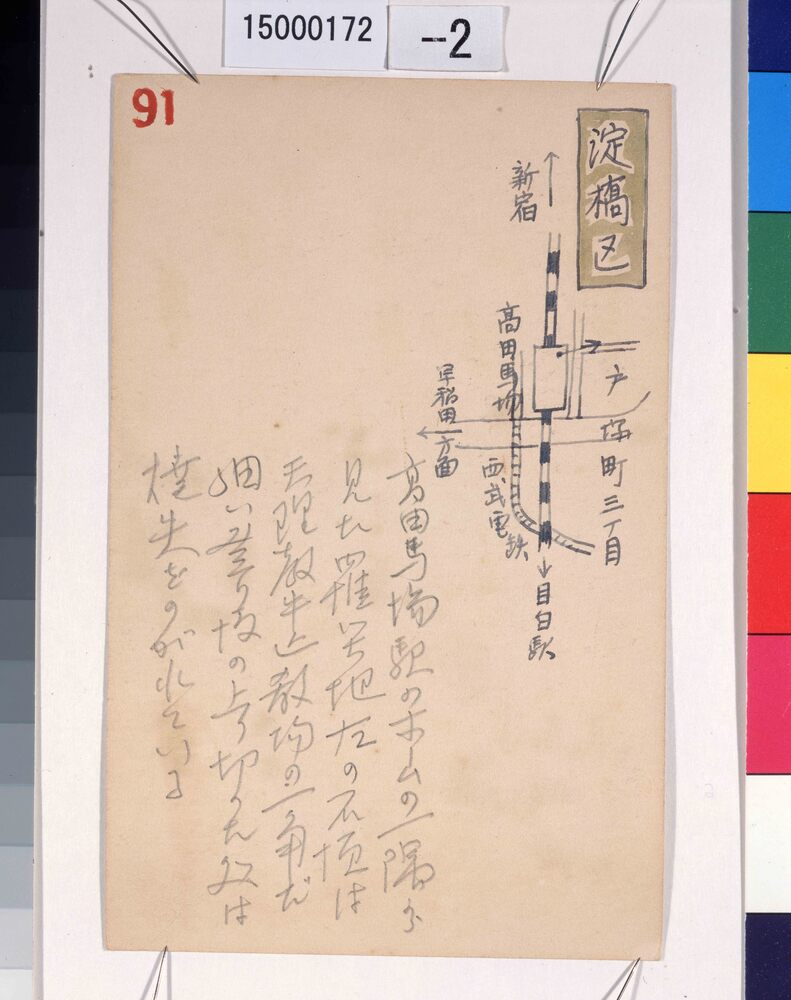 15000172
-2
91
淀橋区
新宿
高田馬場
戸塚町三丁目
早稲田方面
西武電鉄
目白駅
高田馬場駅のホームの一隅から
見た罹災地 左の石垣は
天理教牛込教場の一角だ
細い登り坂の上り切った処は
焼失をのがれている